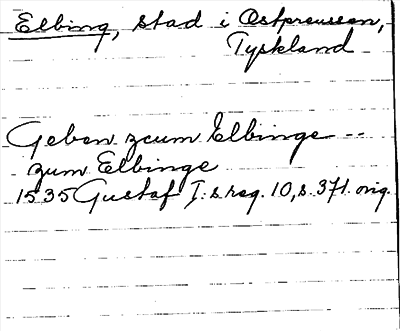 Elbing, stad i Ostpreussen,
Tyskland
Geben zcum Elbinge --
zum Elbinge
1535 Gustaf I:s reg. 10, s. 371. orig.